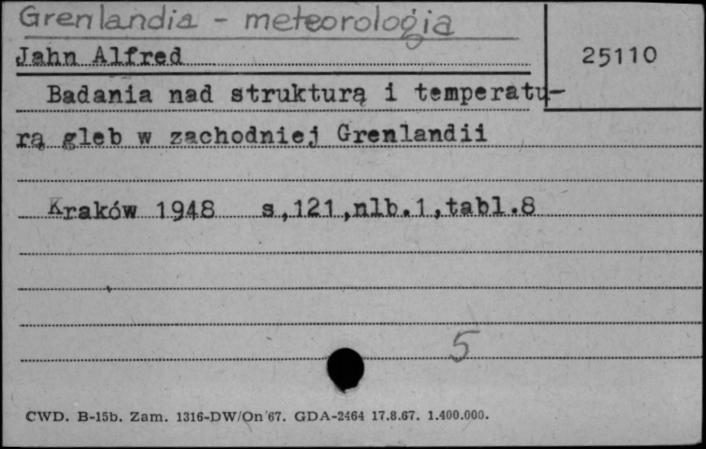 Grenlandia - meteorologia
Jahn Alfred
25110
Badania nad strukturą i temperatu-
rą gleb w zachodniej Grenlandii
Kraków 1948 s,121,nlb.1,tabl.8
5
CWD. B-15b. Zam. 1316-DW/On'67. GDA-2464 17.8.67. 1.400.000.